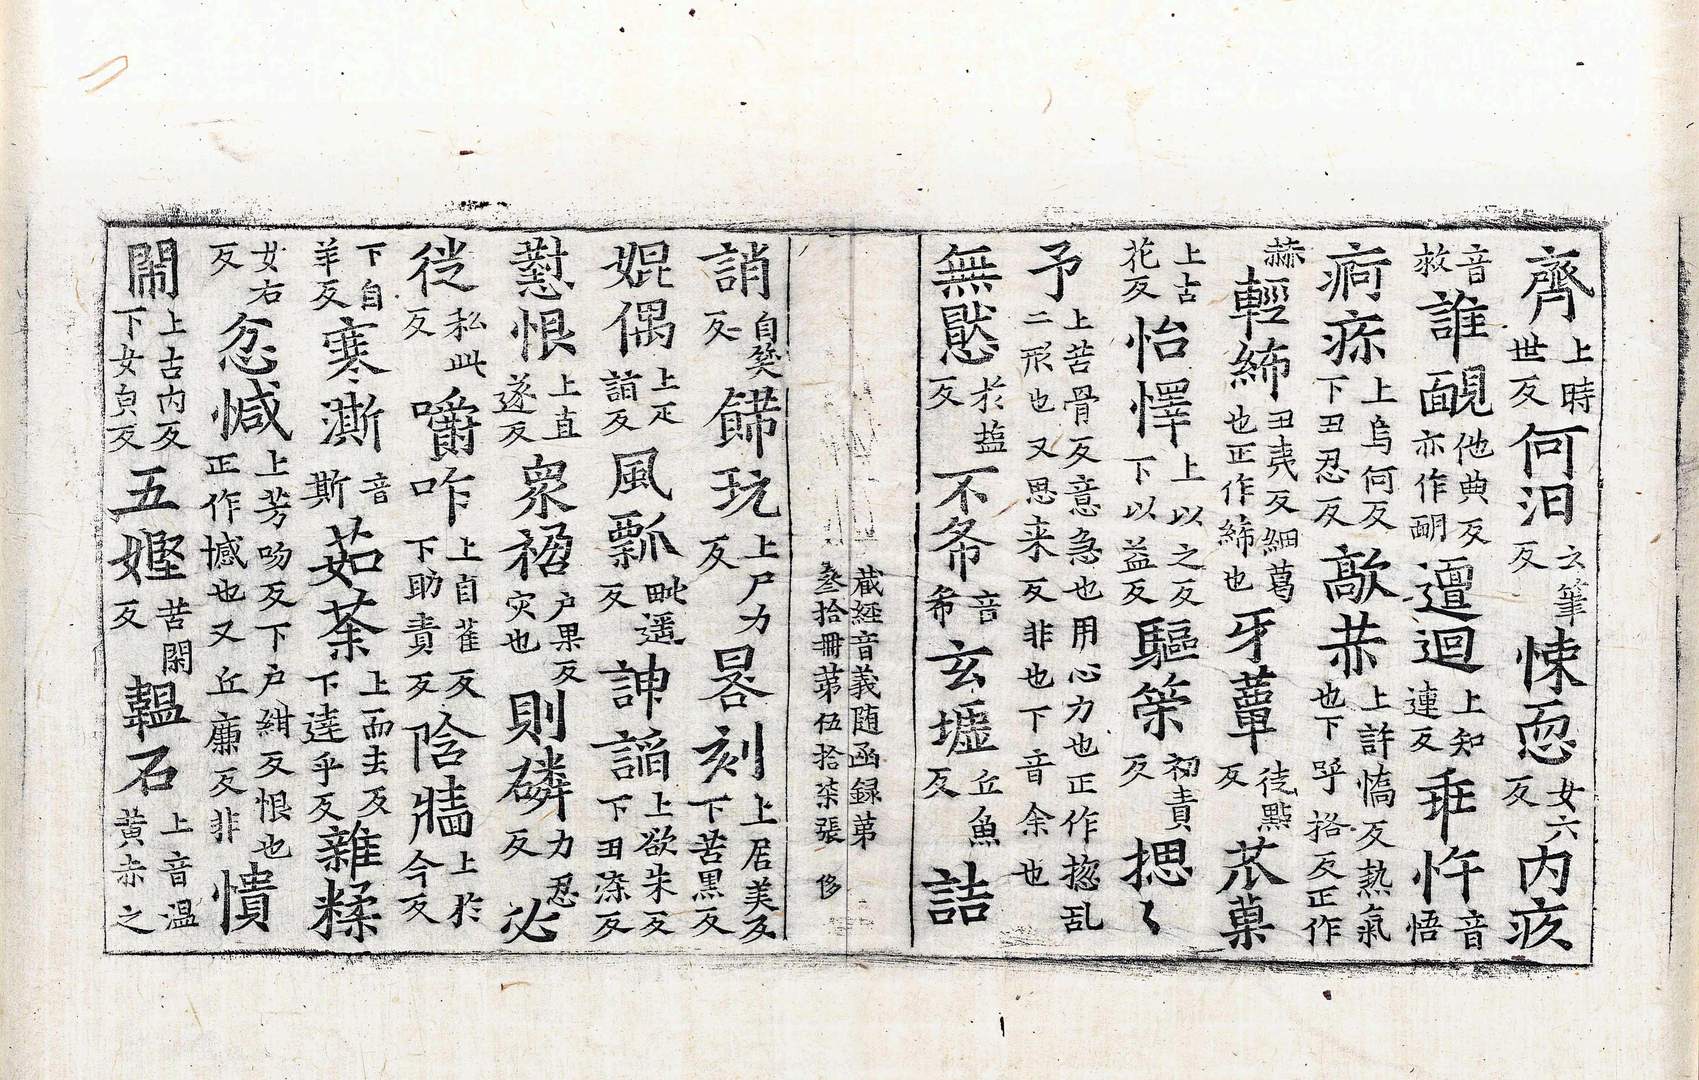 齊上時世反何汨玄筆反悚恧女六反内疚
音救誰靦他典反亦作酮邅迴上知連反乖忤音悟
痾疢上烏何反下丑忍反歊恭上許憍反熱氣也下呼挌反正作
赫輕絺丑夷反細葛也正作絺也牙蕈徒點反苽菓
上古花反怡懌上以之反下以益反驅筞初責反揌〻
予上苦骨反意急也用心力也正作揔乱二形也又思来反非也下音余也
無厭於塩反不希音希玄墟丘魚反詰
藏經音義随函録苐叁拾冊苐伍拾柒張 侈
誚自焚反餙玩上尸力反晷刻上居美反下苦黒反
媲偶上疋詣反風瓢毗遥反諛謟上欲朱反下田㴱反
懟恨上直遂反衆祸户果反灾也則磷力忍反必
徙私此反嚼咋上自雀反下助責反陰牆上於今反
下自羊反寒澌音斯茹荼上而去反下達乎反雜糅
女右反忿憾上芳吻反下户紺反恨也正作憾也又丘廉反非憒
閙上古内反下女皃反五慳苦閑反韞石上音温黄赤之